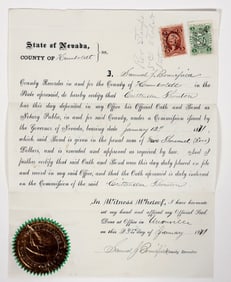 State of Nevada,
COUNTY OF Humboldt } ss.
I, Samuel J. Bonnifield
County Recorder in and for the County of Humboldt
State aforesaid, do hereby certify that
has this day deposited in my Office his Official Oath and Bond as
Notary Public, in and for said County, under a commission issued by
the Governor of Nevada, bearing date January 13th 1871
which said Bond is given in the penal sum of Five Thousand
Dollars, and is recorded and approved as required by law. And I
further certify that said Oath and Bond was this day duly placed on file and
record in my said Office, and that the Oath aforesaid is duly entered
on the Commission of the said
In Witness Whereof, I have hereunto
set my hand and affixed my Official Seal
Done at Office in Unionville
this 23rd day of January 1871
Samuel J. Bonnifield
County Recorder